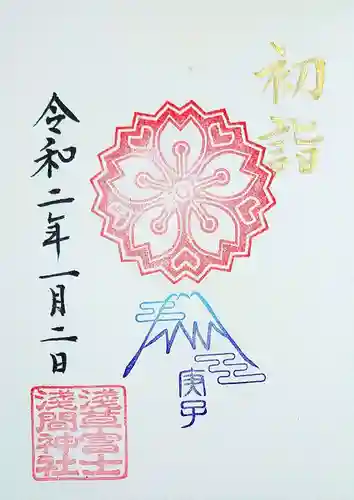 初詣
庚子
令和二年一月二日
淺草富士
淺間神社